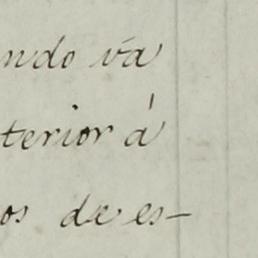 ndo va
terior á
os de es-